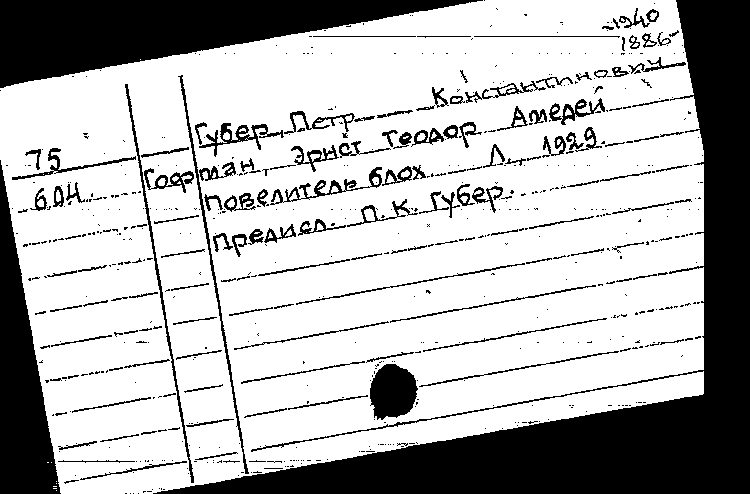 -1940
1886-
Губер, Петр Константинович
75
Гофман, Эрнст Теодор Амедей
6.04.
Повелитель блох Л., 1929.
Предисл. П. К. Губер.